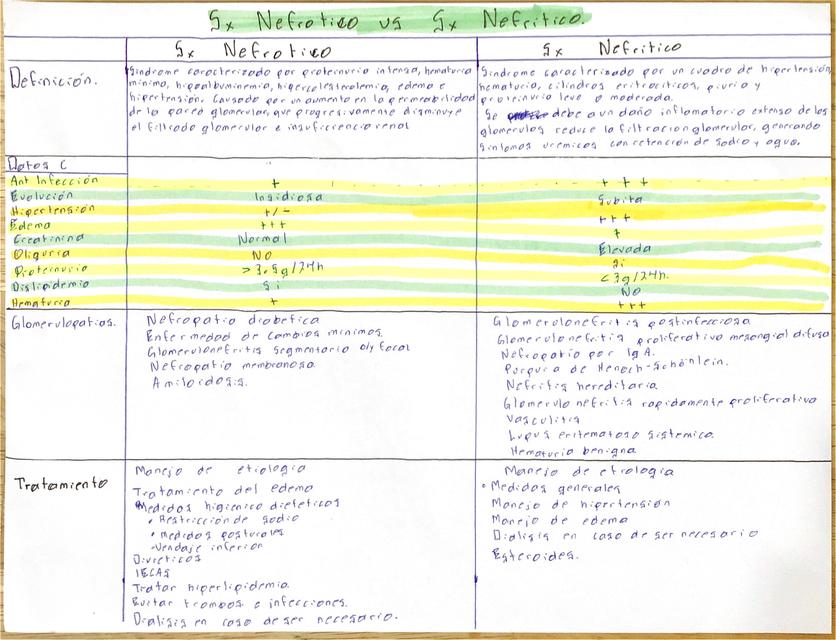 Sx Nefrotico vs Sx Nefritico.
Sx Nefrotico
Sx Nefritico
Definición.
Sindrome caracterizado por proteinuria intensa, hematuria
minima, hipoalbuminemia, hipercolesterolemia, edema e
hipertensión. Causado por un aumento en la permeabilidad
de la pared glomerular, que progresivamente disminuye
el filtrado glomerular e insuficiencia renal
Sindrome caracterizado por un cuadro de hipertensión,
hematuria, cilindros eritrocíticos, piuria y
proteinuria leve o moderada.
Se debe a un daño inflamatorio extenso de los
glomerulos reduce la filtracion glomerular, generando
sintomas uremicos con retención de sodio y agua.
Datos C
Ant Infección + + + +
Evolución Insidiosa Subita
Hipertensión +/- +++
Edema +++ +
Creatinina Normal Elevada
Oliguria NO Si
Proteinuria >3.5g/24h <3g/24h.
Dislipidemia Si NO
Hematuria + +++
Glomerulopatias.
Nefropatia diabetica
Enfermedad de cambios minimos.
Glomerulonefritis segmentaria o/y focal
Nefropatia membranosa.
Amiloidosis.
Glomerulonefritis postinfecciosa
Glomerulonefritis proliferativa mesangial difusa
Nefropatia por IgA.
Purpura de Henoch-Schönlein.
Nefritis hereditaria.
Glomerulonefritis rapidamente proliferativa
Vasculitis
Lupus eritematoso sistemico.
Hematuria benigna.
Tratamiento
Manejo de etiologia
Tratamiento del edema
Medidas higienico dieteticos
• Restricción de sodio
• medidas posturales
-Vendaje inferior
Diureticos
IECAS
Tratar hiperlipidemia.
Evitar trombos e infecciones.
Dialisis en caso de ser necesario.
Manejo de etiologia
• Medidas generales
Manejo de hipertensión
Manejo de edema
Dialisis en caso de ser necesario
Esteroides.